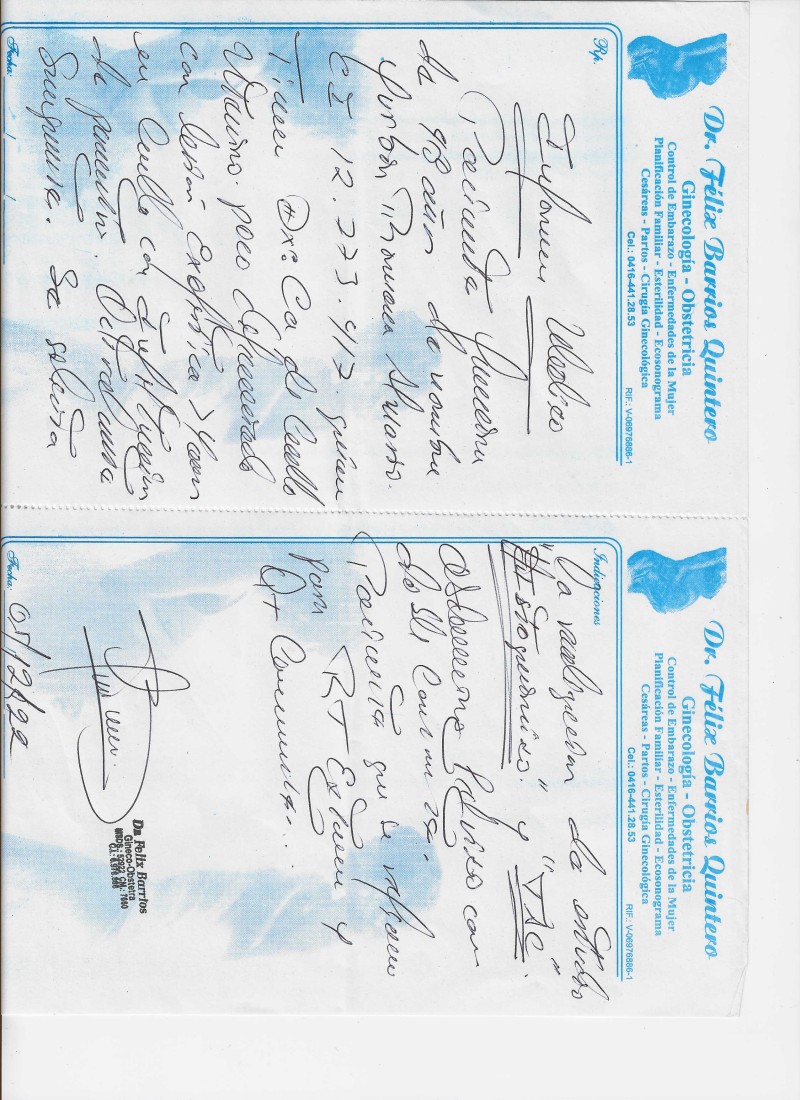 Dr. Félix Barrios Quintero
Ginecología - Obstetricia
Control de Embarazo - Enfermedades de la Mujer
Planificación Familiar - Esterilidad - Ecosonograma
Cesáreas - Partos - Cirugía Ginecológica
Cel.: 0416-441.28.53
RIF.: V-06976886-1
Rp.
Informe Medico
Paciente femenina
de 48 años de nombre
CI 12.373.417. quien
Tiene Dx: Ca de Cuello
Uterino poco diferenciado
con lesión Exofitica
en Cuello con Infiltración
de parametrio.
Sangrante. Se solicita
Fecha: / /
Dr. Félix Barrios Quintero
Ginecología - Obstetricia
Control de Embarazo - Enfermedades de la Mujer
Planificación Familiar - Esterilidad - Ecosonograma
Cesáreas - Partos - Cirugía Ginecológica
Cel.: 0416-441.28.53
RIF.: V-06976886-1
Indicaciones
La realización de estudio
y "TAC"
Abdomino Pelvico con
Paciente que se refiere
para RT Externa y
QT
Dr. Felix Barrios
Gineco-Obstetra
Fecha: 05/12/22